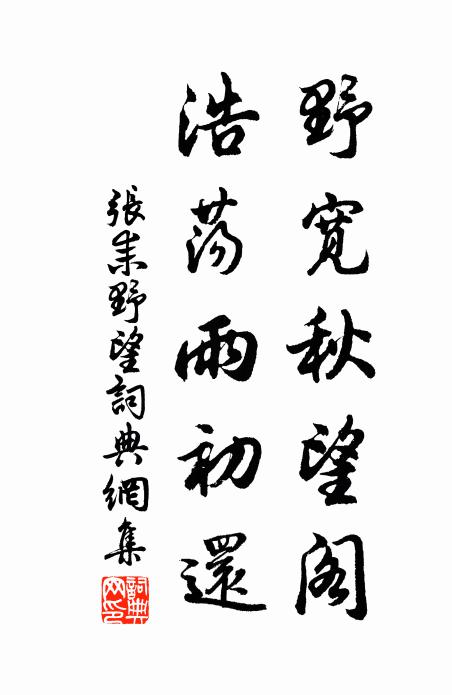 野寬秋望閣
浩蕩雨初還
張耒野望詞典網集
詞典网印